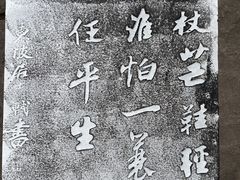 杖芒鞋輕
誰怕一蓑
任平生
坡居 書